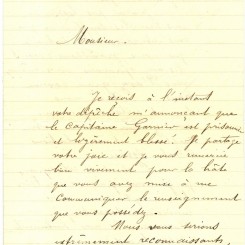 Monsieur.
Je reçois à l'instant
votre dépêche m'annonçant que
le Capitaine Garnier est prisonnier
et légèrement blessé. Je partage
votre joie et je vous remercie
bien vivement pour la hâte
que vous avez mise à me
communiquer le renseignement
que vous possédez.
Nous vous serions
extrêmement reconnaissants,